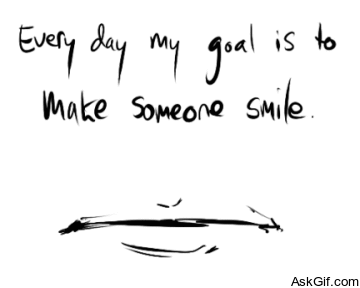 Every day my goal is to
make someone smile.
AskGif.com